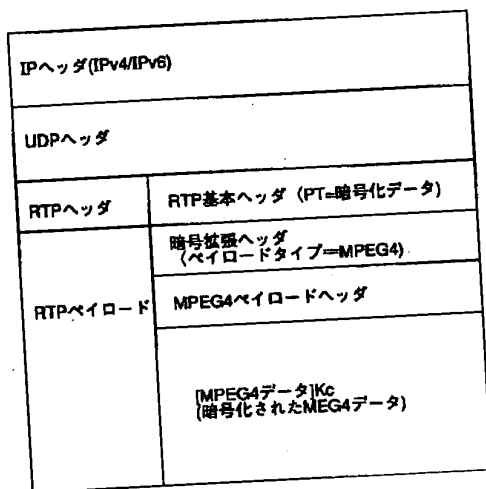 IPヘッダ(IPv4/IPv6)
UDPヘッダ
RTPヘッダ
RTP基本ヘッダ（PT=暗号化データ)
暗号拡張ヘッダ
（ペイロードタイプ=MPEG4)
RTPペイロード
MPEG4ペイロードヘッダ
[MPEG4データ]Kc
(暗号化されたMEG4データ)